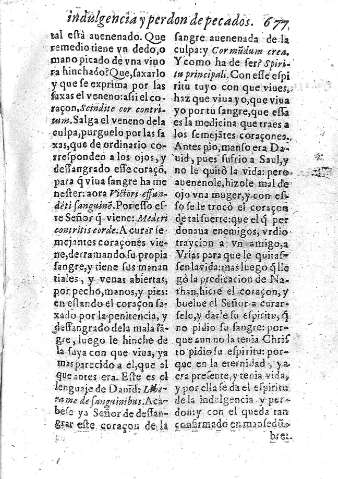 indulgencia y perdon de pecados. 677
tal està auenenado. Que
remedio tiene vn dedo, o
mano picado de vna viuo
ra hinchado? Que, saxarlo
y que se exprima por las
saxas el veneno: assi el co
raçon, Scindite cor contri-
tum. Salga el veneno de la
culpa, purguelo por las sa
xas, que de ordinario co
rresponden a los ojos, y
dessangrado esse coraçõ,
para q̃ viua sangre ha me
nester: aora
dẽti sanguinẽ. Por esso es
te Señor q̃ viene: Mederi
contritis corde. A curar se
mejantes coraçones vie-
ne, derramando su propia
sangre, y tiene sus manan
tiales, y venas abiertas,
por pecho, manos, y pies:
en estando el coraçon sa-
xado por la penitencia, y
dessangrado de la mala sã
gre, luego le hinche de
la suya con que viua, ya
mas parecido a el, que al
que antes era. Este es el
lenguaje de Dauid: Libe-
ra me de sanguinibus. Aca
bese ya Señor de dessan-
grar este coraçon de la
sangre auenenada de la
culpa: y Cor mũdum crea.
Y como ha de ser? Spiri-
tu principali. Con esse espi
ritu tuyo con que viues,
haz que viua yo, que viua
yo por tu sangre, que essa
es la medicina que traes a
los semejãtes coraçones.
Antes pio, manso era Da-
uid, pues sufrio a Saul, y
no le quitò la vida: pero
auenenole, hizole mal de
ojo vna muger, y con es-
so se le trocò el coraçon
de tal suerte: que el q̃ per
donaua enemigos, vrdio
traycion a vn amigo, a
Vrias para que le quitas-
sen la vida: mas luego q̃ lle
gò la predicacion de Na-
than, hirió el coraçon, y
buelue el Señor a curar-
selo, y darle su espiritu, q̃
no pidio su sangre: por-
que aun no la tenia Chris
to pidio su espiritu: por-
que en la eternidad, ya
era presente, y tenia vida,
y por ella se da el espiritu
de la indulgencia y per-
don: y con el queda tan
confirmado en mansedũ-
bre: